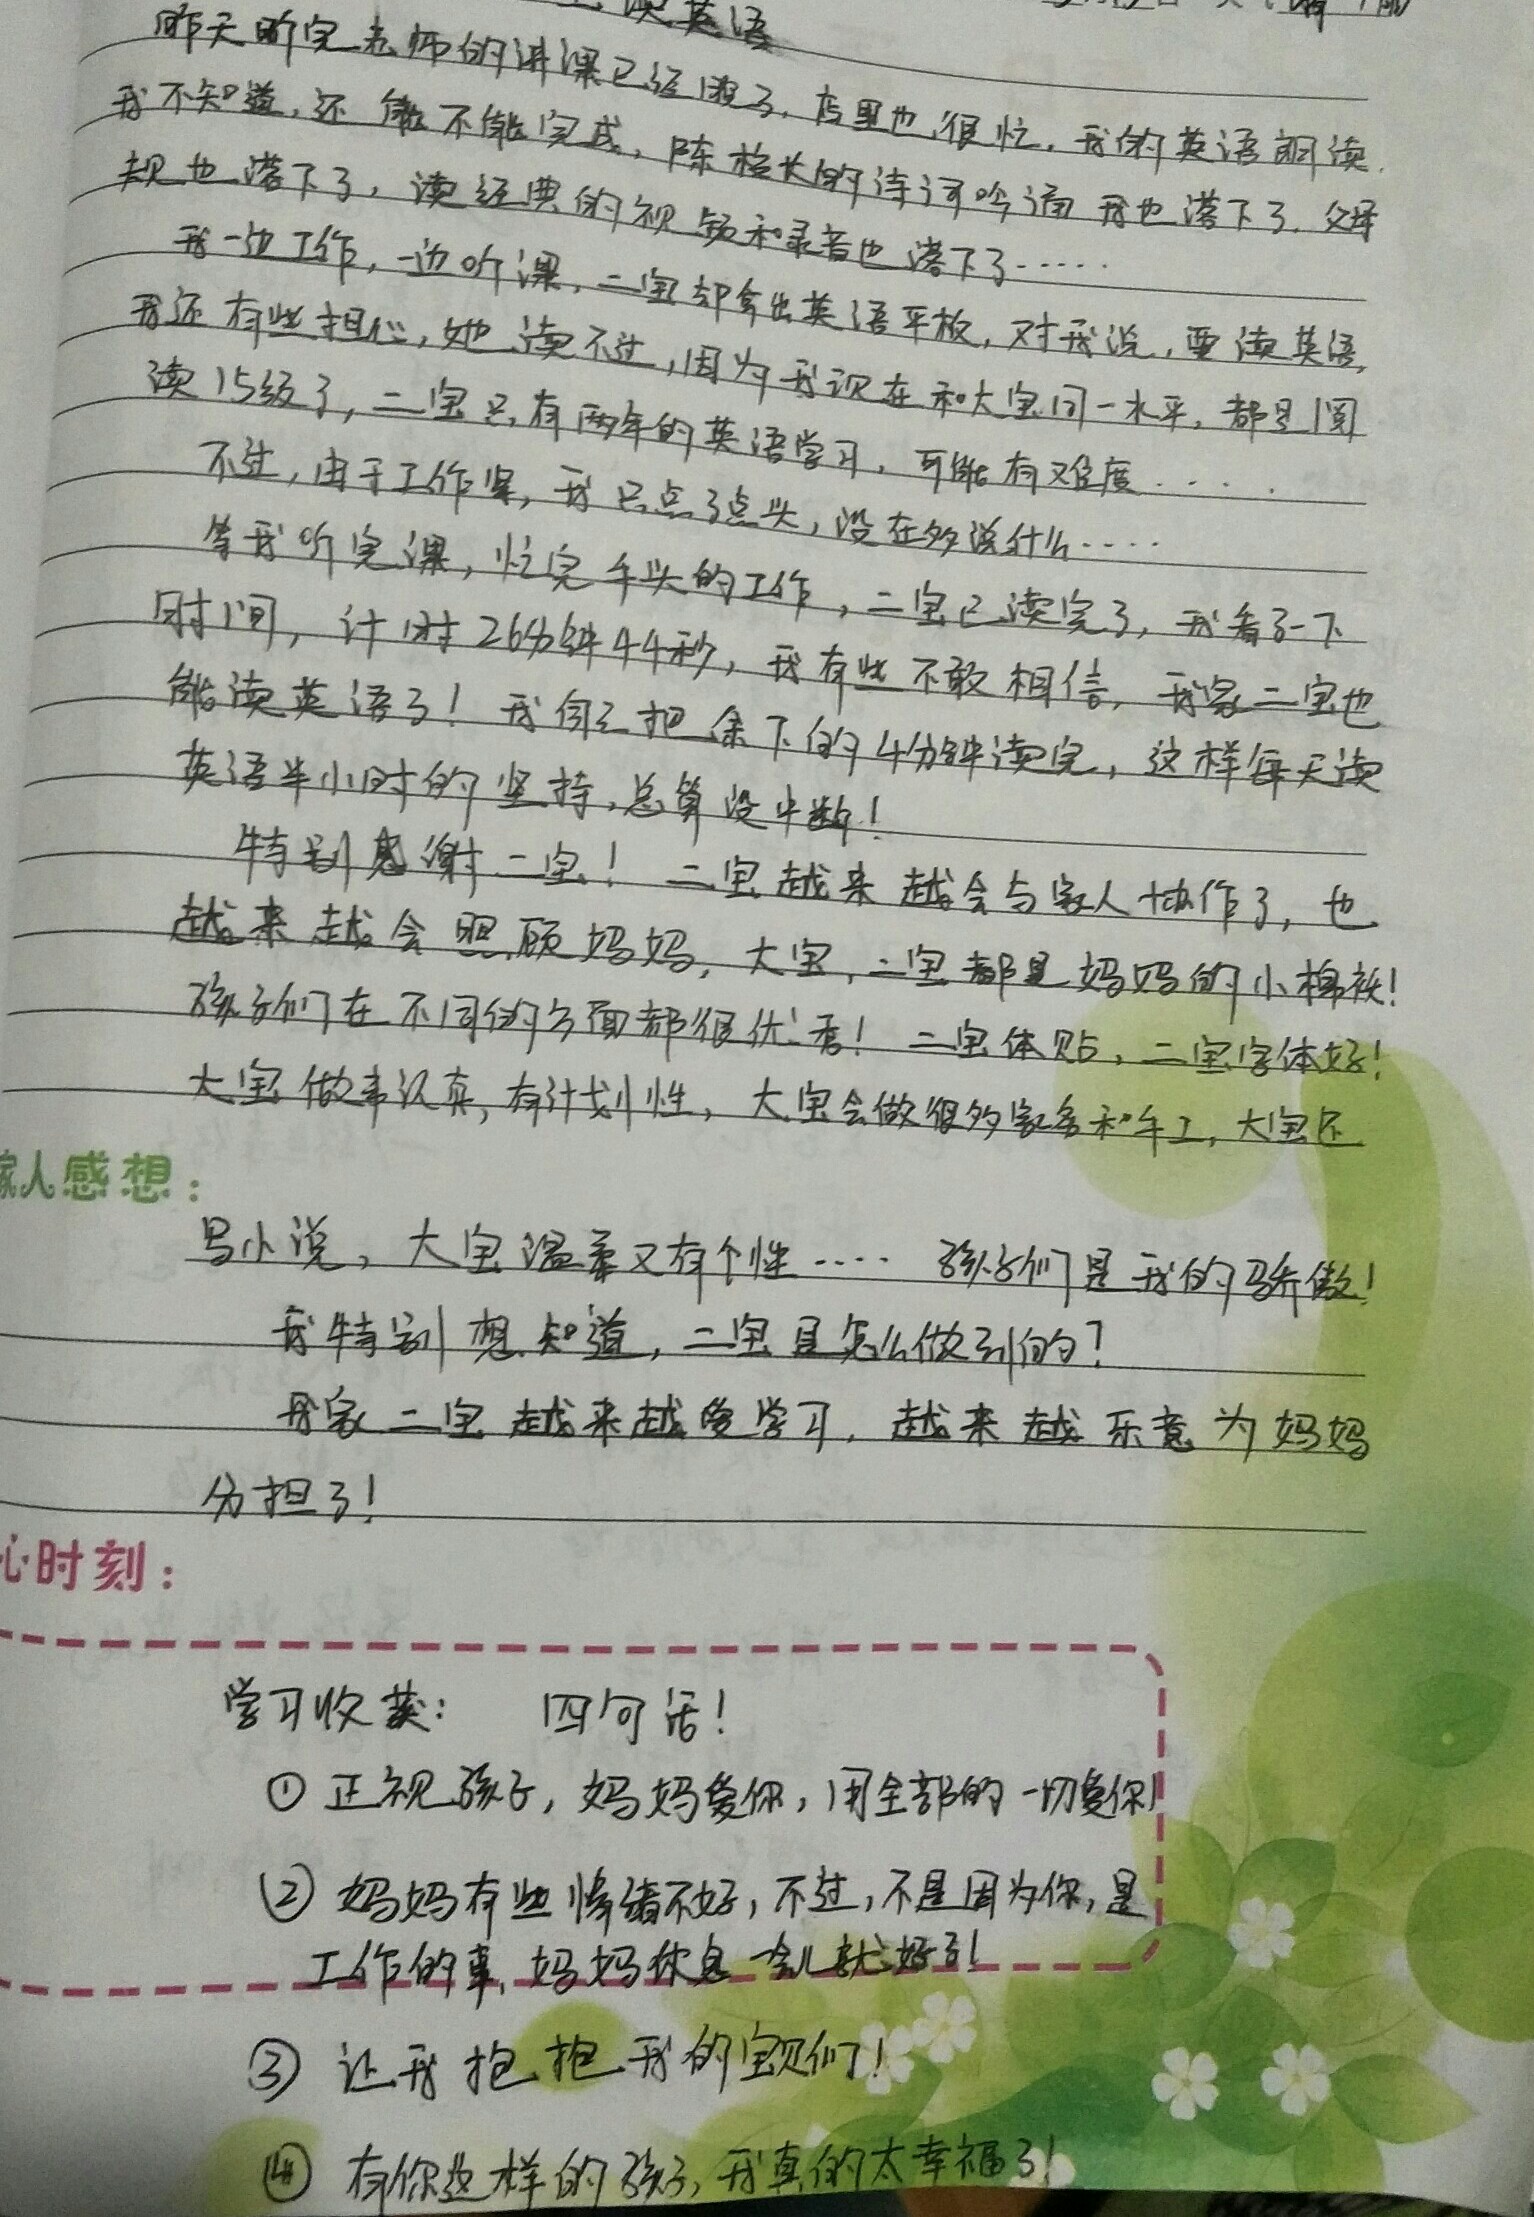 读英语
昨天听完老师的讲课已经很晚了，店里也很忙，我的英语朗读，
我不知道，还能不能完成，陈校长的诗词吟诵我也落下了，父母
规也落下了，读经典的视频和录音也落下了……
我一边工作，一边听课，二宝却拿出英语平板，对我说，要读英语，
我还有些担心，她读不过，因为我现在和大宝同一水平，都是阅
读15级了，二宝只有两年的英语学习，可能有难度……
不过，由于工作紧，我只点了点头，没在多说什么……
等我听完课，忙完手头的工作，二宝已读完了，我看了一下
时间，计时26分钟44秒，我有些不敢相信，我家二宝也
能读英语了！我匆匆把余下的4分钟读完，这样每天读
英语半小时的坚持，总算没中断！
特别感谢二宝！二宝越来越会与家人协作了，也
越来越会照顾妈妈，大宝，二宝都是妈妈的小棉袄！
孩子们在不同的方面都很优秀！二宝体贴，二宝字体好！
大宝做事认真，有计划性，大宝会做很多家务和手工，大宝还
家人感想：
写小说，大宝温柔又有个性……孩子们是我的骄傲！
我特别想知道，二宝是怎么做到的？
我家二宝越来越爱学习，越来越乐意为妈妈
分担了！
心时刻：
学习收获： 四句话！
① 正视孩子，妈妈爱你，用全部的一切爱你！
② 妈妈有些情绪不好，不过，不是因为你，是
工作的事，妈妈休息一会儿就好了！
③ 让我抱抱我的宝贝们！
④ 有你这样的孩子，我真的太幸福了！